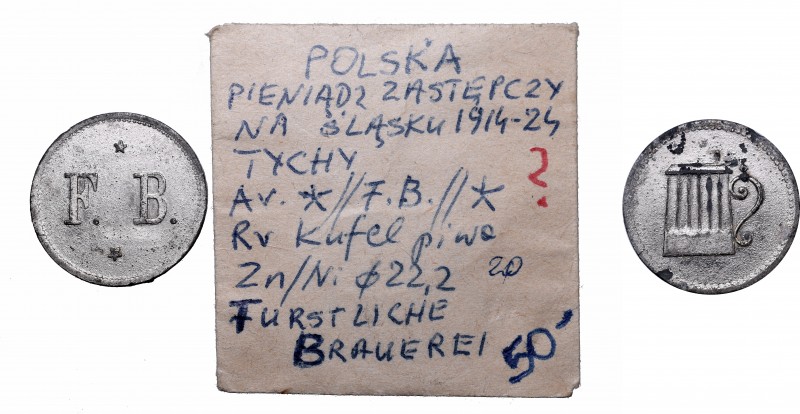 F. B.
POLSKA
PIENIĄDZ ZASTĘPCZY
NA ŚLĄSKU 1914-24
TYCHY ?
Av. *//F.B.//*
Rv Kufel piwa
Zn/Ni φ22,2 20
FURSTLICHE
BRAUEREI 50'